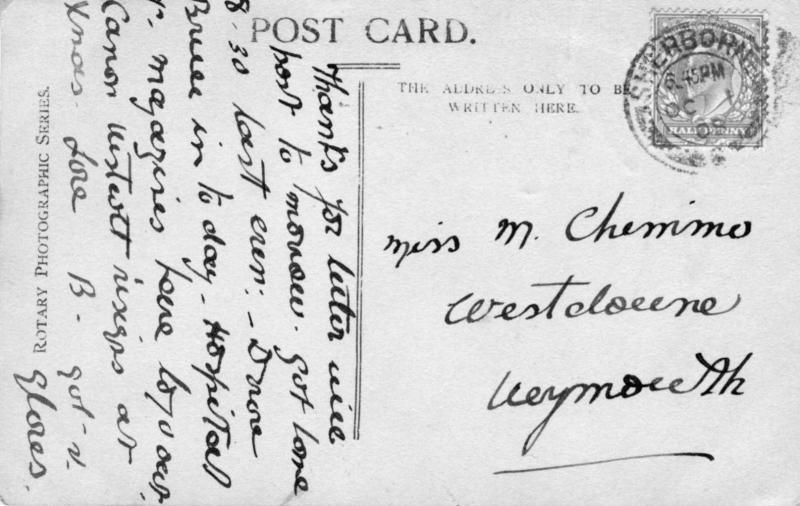 POST CARD.
THE ADDRESS ONLY TO BE
WRITTEN HERE.
ROTARY PHOTOGRAPHIC SERIES.
SHERBORNE
6.45PM
OC 1
HALFPENNY
Miss M. Chemmo
Westdowne
Weymouth
Thanks for letter will
post to morrow. Got home
8.30 last even: - Drove
Bruce in to day - Hospital
magazines have to your
Canon Westcott resigns at
Xmas. Love B - got
gloves.